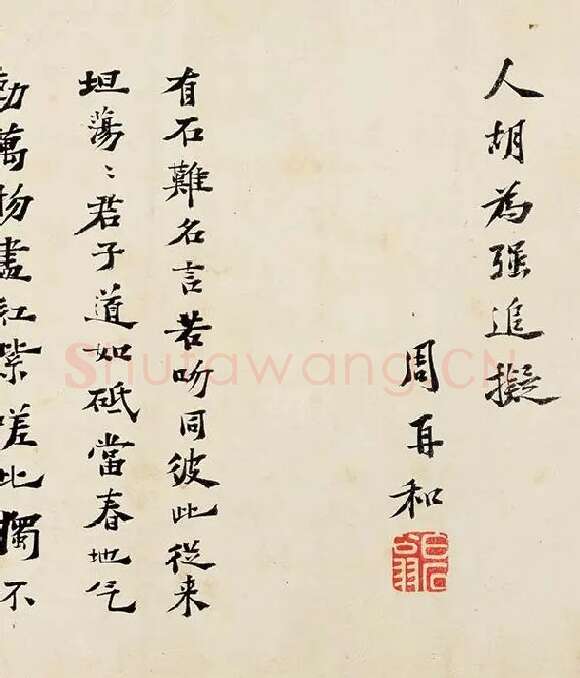 人胡為强追擬
周再和
白石翁
有石難名言若吻同彼此從来
坦蕩〻君子道如砥當春地气
動萬物盡紅紫嗟此獨不
Shufawang.CN